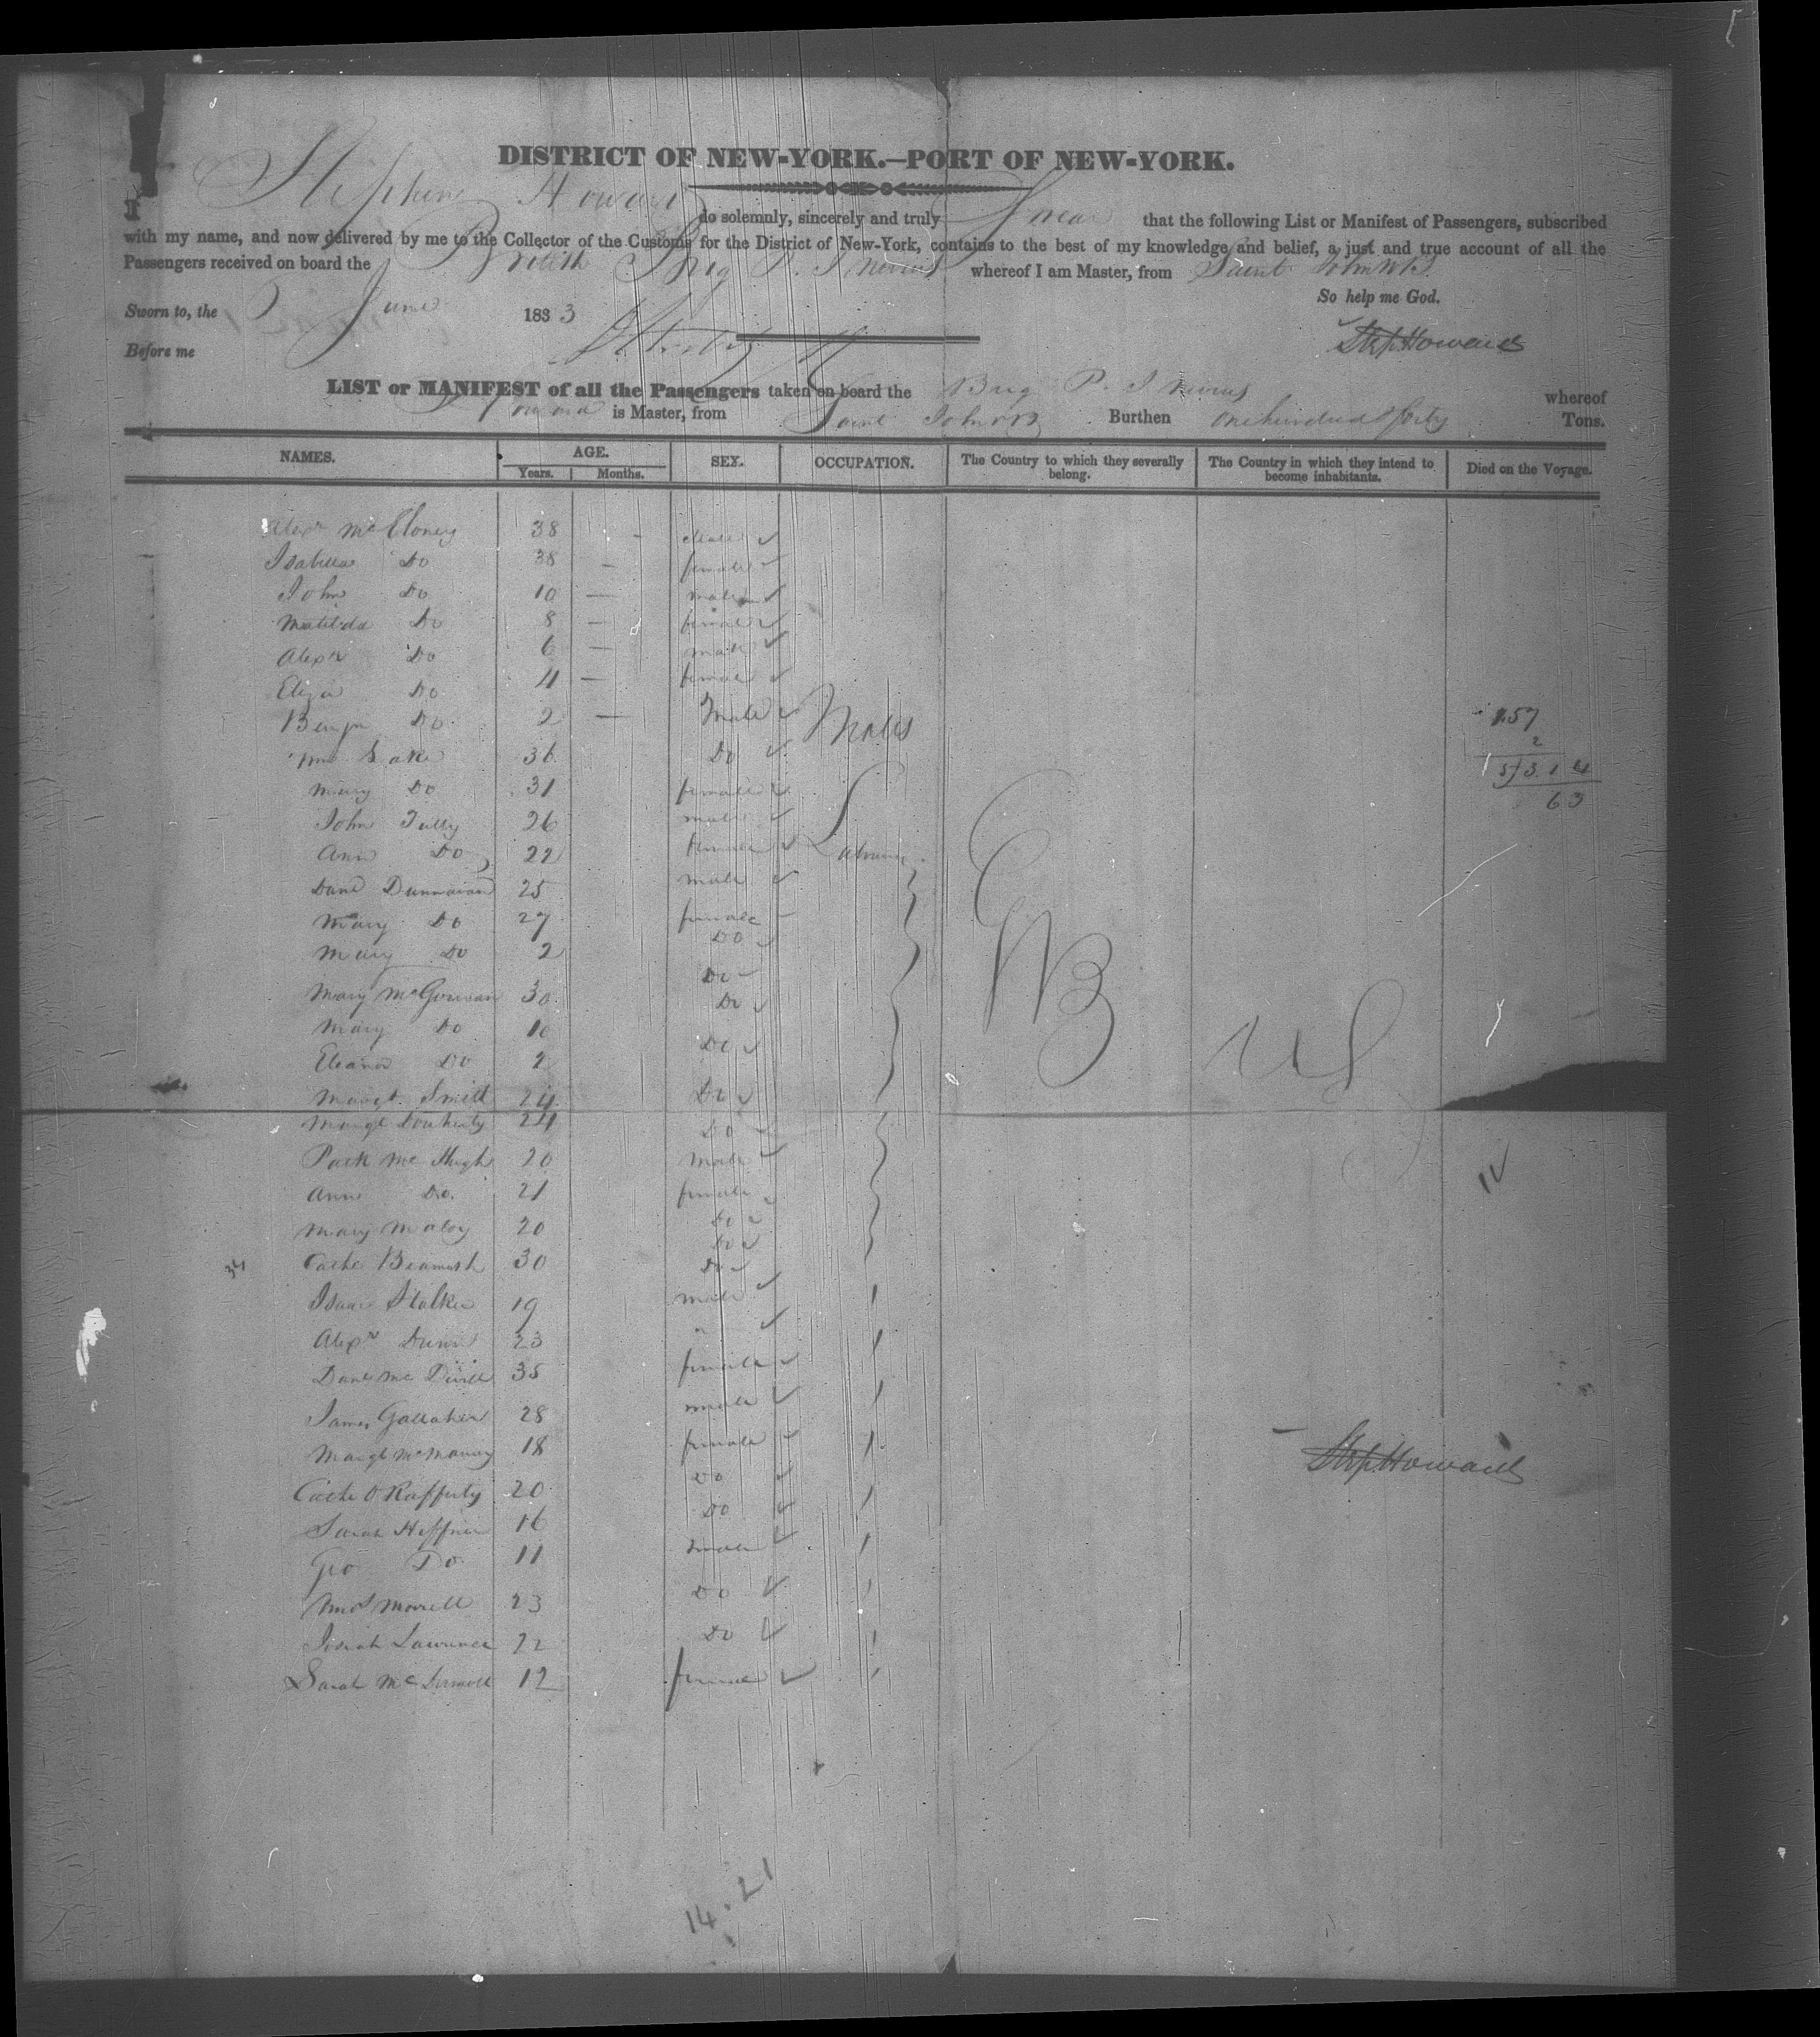 DISTRICT OF NEW-YORK.—PORT OF NEW-YORK.
I Stephen Howard do solemnly, sincerely and truly Swear that the following List or Manifest of Passengers, subscribed
with my name, and now delivered by me to the Collector of the Customs for the District of New-York, contains to the best of my knowledge and belief, a just and true account of all the
Passengers received on board the British Brig P. I. Nevius whereof I am Master, from Saint John NB.
So help me God.
Sworn to, the June 1833
Step Howard
Before me
LIST or MANIFEST of all the Passengers taken on board the Brig P. I Nevius whereof
Howard is Master, from Saint John NB Burthen one hundred & forty Tons.
NAMES. AGE. SEX. OCCUPATION. The Country to which they severally belong. The Country in which they intend to become inhabitants. Died on the Voyage.
Years. Months.
Alexr McCloney 38 - Male
Isabella Do 38 — female
John Do 10 — male
Matilda Do 8 — female
Alexr Do 6 — male
Eliza Do 4 — female
Benjn Do 2 — Male
Males
1.57
2
5/3.14
63
36 Do
Mary Do 31 female
John Tully 26 male
Ann Do 22 female
Labourers
Danl 25 male
Mary Do 27 female
Mary Do 2 Do
Mary McGowan 30 Do
Mary Do 10 Do
Eleanor Do 2 Do
GB
US
Margt Smith 24 Do
Margt Douherty 24 Do
Patk McHugh 20 male
Ann Do. 21 female
Mary Maloy 20 Do
Do
34 Cathe Beamish 30 Do
Isaac Stalker 19 male
Alexr Dunn 23 "
Danl McDivitt 35 female
James Gallaher 28 male
Margt McManny 18 female
Step Howard
Cathe O Rafferty 20 Do
Sarah Heffner 16 Do
Geo Do 11 male
Morrell 23 Do
Josiah Lawrence 22 Do
Sarah McDermott 12 female
14.21